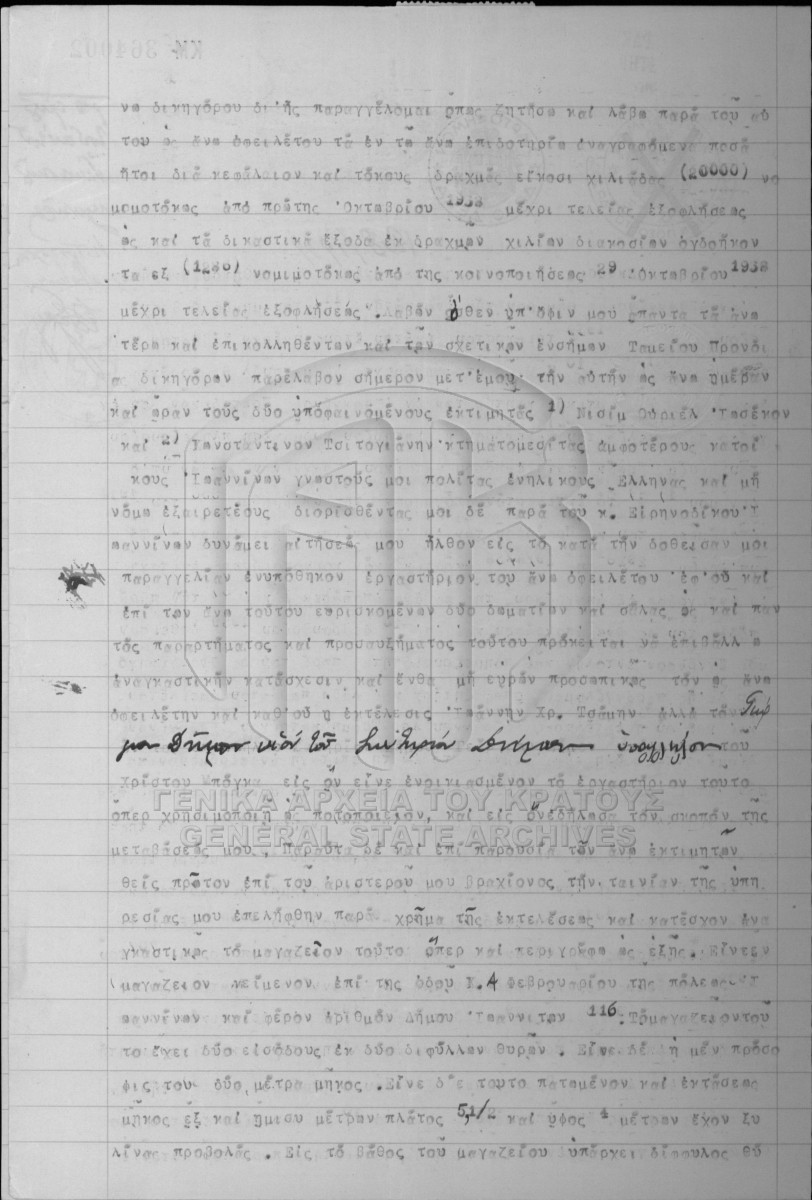 νω δικηγόρου δι'ἧς παραγγέλομαι ὅπως ζητήσω καί λάβω παρά τοῦ αὐ
τοῦ ὡς ἄνω ὀφειλέτου τά ἐν τῶ ἄνω ἐπιδοτηρίω ἀναγραφόμενα ποσά
ἤτοι διά κεφάλαιον καί τόκους δραχμάς εἴκοσι χιλιάδας (20000) νο
μομοτόκως ἀπό πρώτης 'Οκτωβρίου 1938 μέχρι τελείας ἐξοφλήσεως
ὡς καί τά δικαστικά ἔξοδα ἐκ δραχμῶν χιλίων διακοσίων ὀγδοήκον
τα ἕξ (1286) νομιμοτόκως ἀπό τῆς κοινοποιήσεως 29 'Οκτωβρίου 1938
μέχρι τελείας ἐξοφλήσεώς . Λαβών ὅθεν ὑπ'ὄψιν μου ἅπαντα τά ἄνω
τέρω καί ἐπικολληθέντων καί τῶν σχετικῶν ἐνσήμων Ταμείου Προνοί
ας δικηγόρων παρέλαβον σήμερον μετ'ἐμοῦ τήν αὐτήν ὡς ἄνω ἡμέραν
καί ὥραν τούς δύο ὑποφαινομένους ἐκτιμητάς 1) Νισίμ Οὐριέλ 'Ιωσέκον
καί 2) Κωνσταντῖνον Τσιτογιάννην κτηματομεσίτας ἀμφοτέρους κατοί
κους 'Ιωαννίνων γνωστούς μοι πολίτας ἐνηλίκους Ἕλληνας καί μή
νόμω ἐξαιρετέους διορισθέντας μοι δέ παρά τοῦ κ. Εἰρηνοδίκου 'Ι
ωαννίνων δυνάμει αἰτήσεώς μου ἦλθον εἰς τό κατά τήν δοθεῖσαν μοι
παραγγελίαν ἐνυπόθηκον ἐργαστήριον τοῦ ἄνω ὀφειλέτου ἐφ'οὗ καί
ἐπί τῶν ἄνω τούτου εὑρισκομένων δύο δωματίων καί σάλας ὡς καί παν
τός παραρτήματος καί προσαυξήματος τούτου πρόκειται νά ἐπιβάλλω
ἀναγκαστικήν κατάσχεσιν καί ἔνθα μή εὑρών προσωπικῶς τόν ὡς ἄνω
ὀφειλέτην καί καθ'οὗ ἡ ἐκτέλεσις 'Ιωάννην Χρ. Τσάμην ἀλλά τόν Γεώρ
υἱόν τοῦ Δήμου ὑπάλληλον τοῦ
Χρίστου Μπόγκα εἰς ὅν εἶνε ἐνοικιασμένον τό ἐργαστήριον τοῦτο
ὅπερ χρησιμοποιῆ ὡς ποτοποιεῖον, καί εἰς ὅν ἐδήλωσα τόν σκοπόν τῆς
μεταβάσεώς μου . Παρόντα δέ καί ἐπί παρουσία τῶν ἄνω ἐκτιμητῶν
θείς πρῶτον ἐπί τοῦ ἀριστεροῦ μου βραχίονος τήν ταινίαν τῆς ὑπη
ρεσίας μου ἐπελήφθην παρά χρῆμα τῆς ἐκτελέσεως καί κατέσχον ἀνα
γκαστικῶς τό μαγαζεῖον τοῦτο ὅπερ καί περιγράφω ὡς ἑξῆς. Εἶνε ἕν
μαγαζεῖον κείμενον ἐπί τῆς ὁδοῦ Ν.4 Φεβρουαρίου τῆς πόλεως 'Ι
ωαννίνων καί φέρον ἀριθμόν Δήμου 'Ιωαννιτῶν 116. Τό μαγαζεῖον τοῦ
το ἔχει δύο εἰσόδους ἐκ δύο διφύλλων θυρῶν . Εἶνε δέ ἡ μέν πρόσο
ψις του δύο μέτρα μῆκος .Εἶνε δ'ὲ τοῦτο πατωμένον καί ἐκτάσεως
μῆκος ἕξ καί ἥμισυ μέτρων πλάτος 5,1/2 καί ὕψος 4 μέτρων ἔχον ξυ
λίνας προβολάς . Εἰς τό βάθος τοῦ μαγαζείου ὑπάρχει δίφυλος θύ
ΓΕΝΙΚΑ ΑΡΧΕΙΑ ΤΟΥ ΚΡΑΤΟΥΣ
GENERAL STATE ARCHIVES